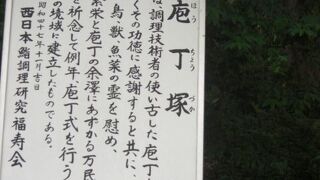 庖丁塚
ほうちょうづか
は、調理技術者の使い古した庖丁
くの功徳に感謝すると共に、
鳥、獣、魚菜の霊を慰め、
繁栄と庖丁の余澤にあずかる万民
を祈念して例年庖丁式を行う
の境域に建立したものである。
昭和四十七年十一月吉日
西日本鮨調理研究福寿会